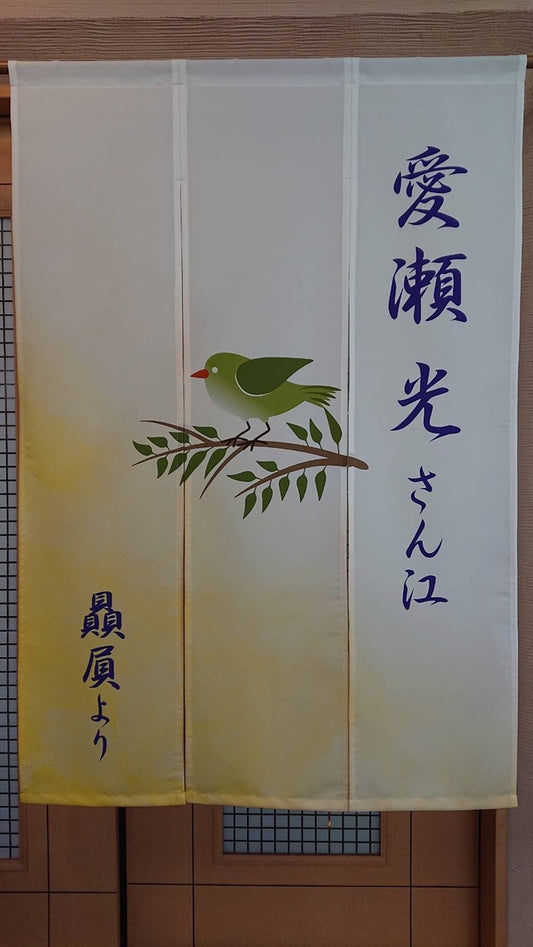 愛瀬光さん江
贔屓より